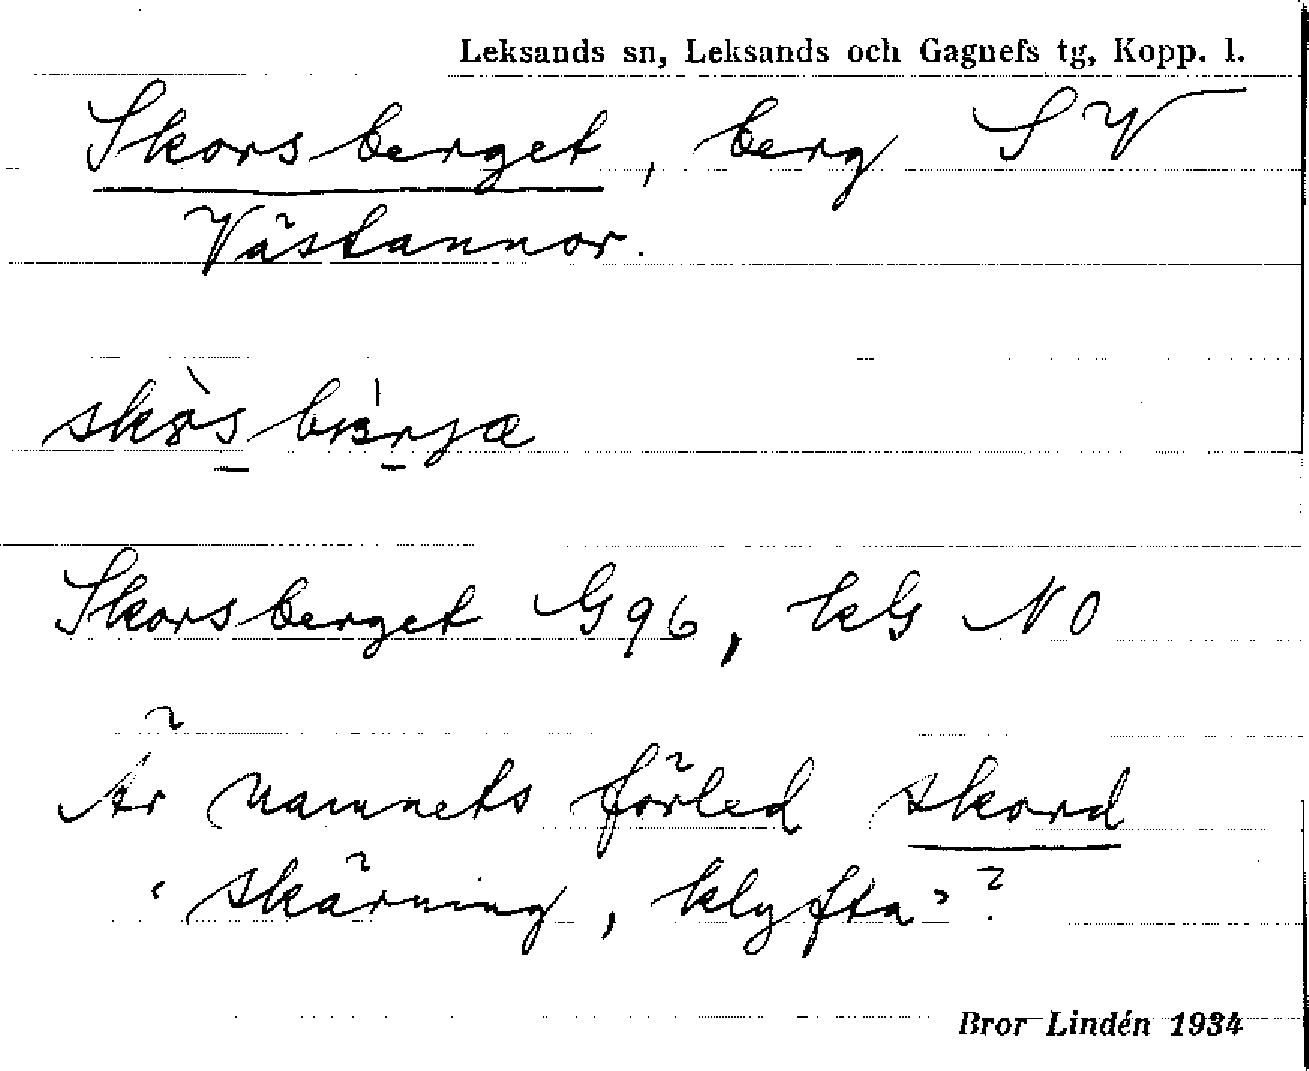 Leksands sn, Leksands och Gagnefs tg, Kopp. l.
Skorsberget, berg SV
Västannor.
Skorsberget G96, kG NO
Är namnets förled skord
‘skärning, klyfta’?
Bror Lindén 1934